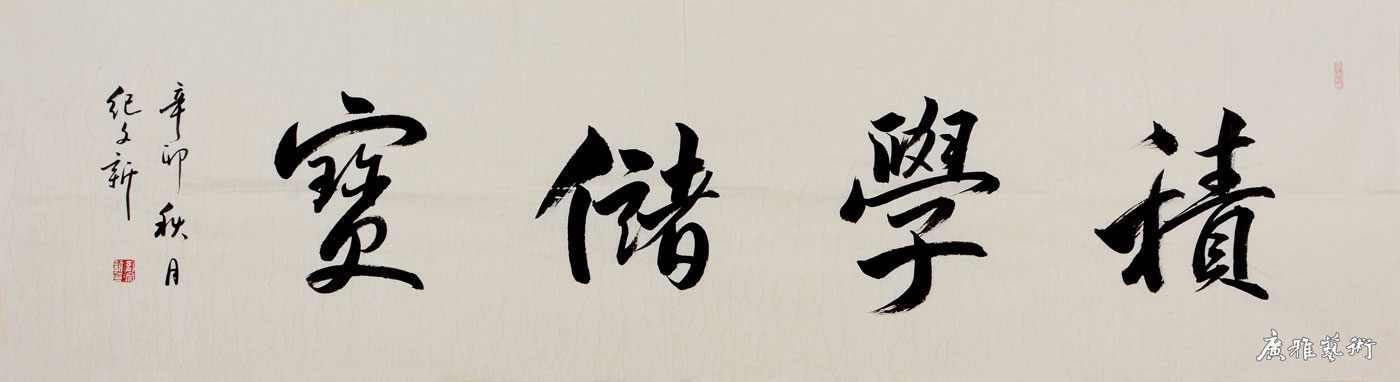 積學儲寶
辛卯秋月
纪文新
廣雅藝術